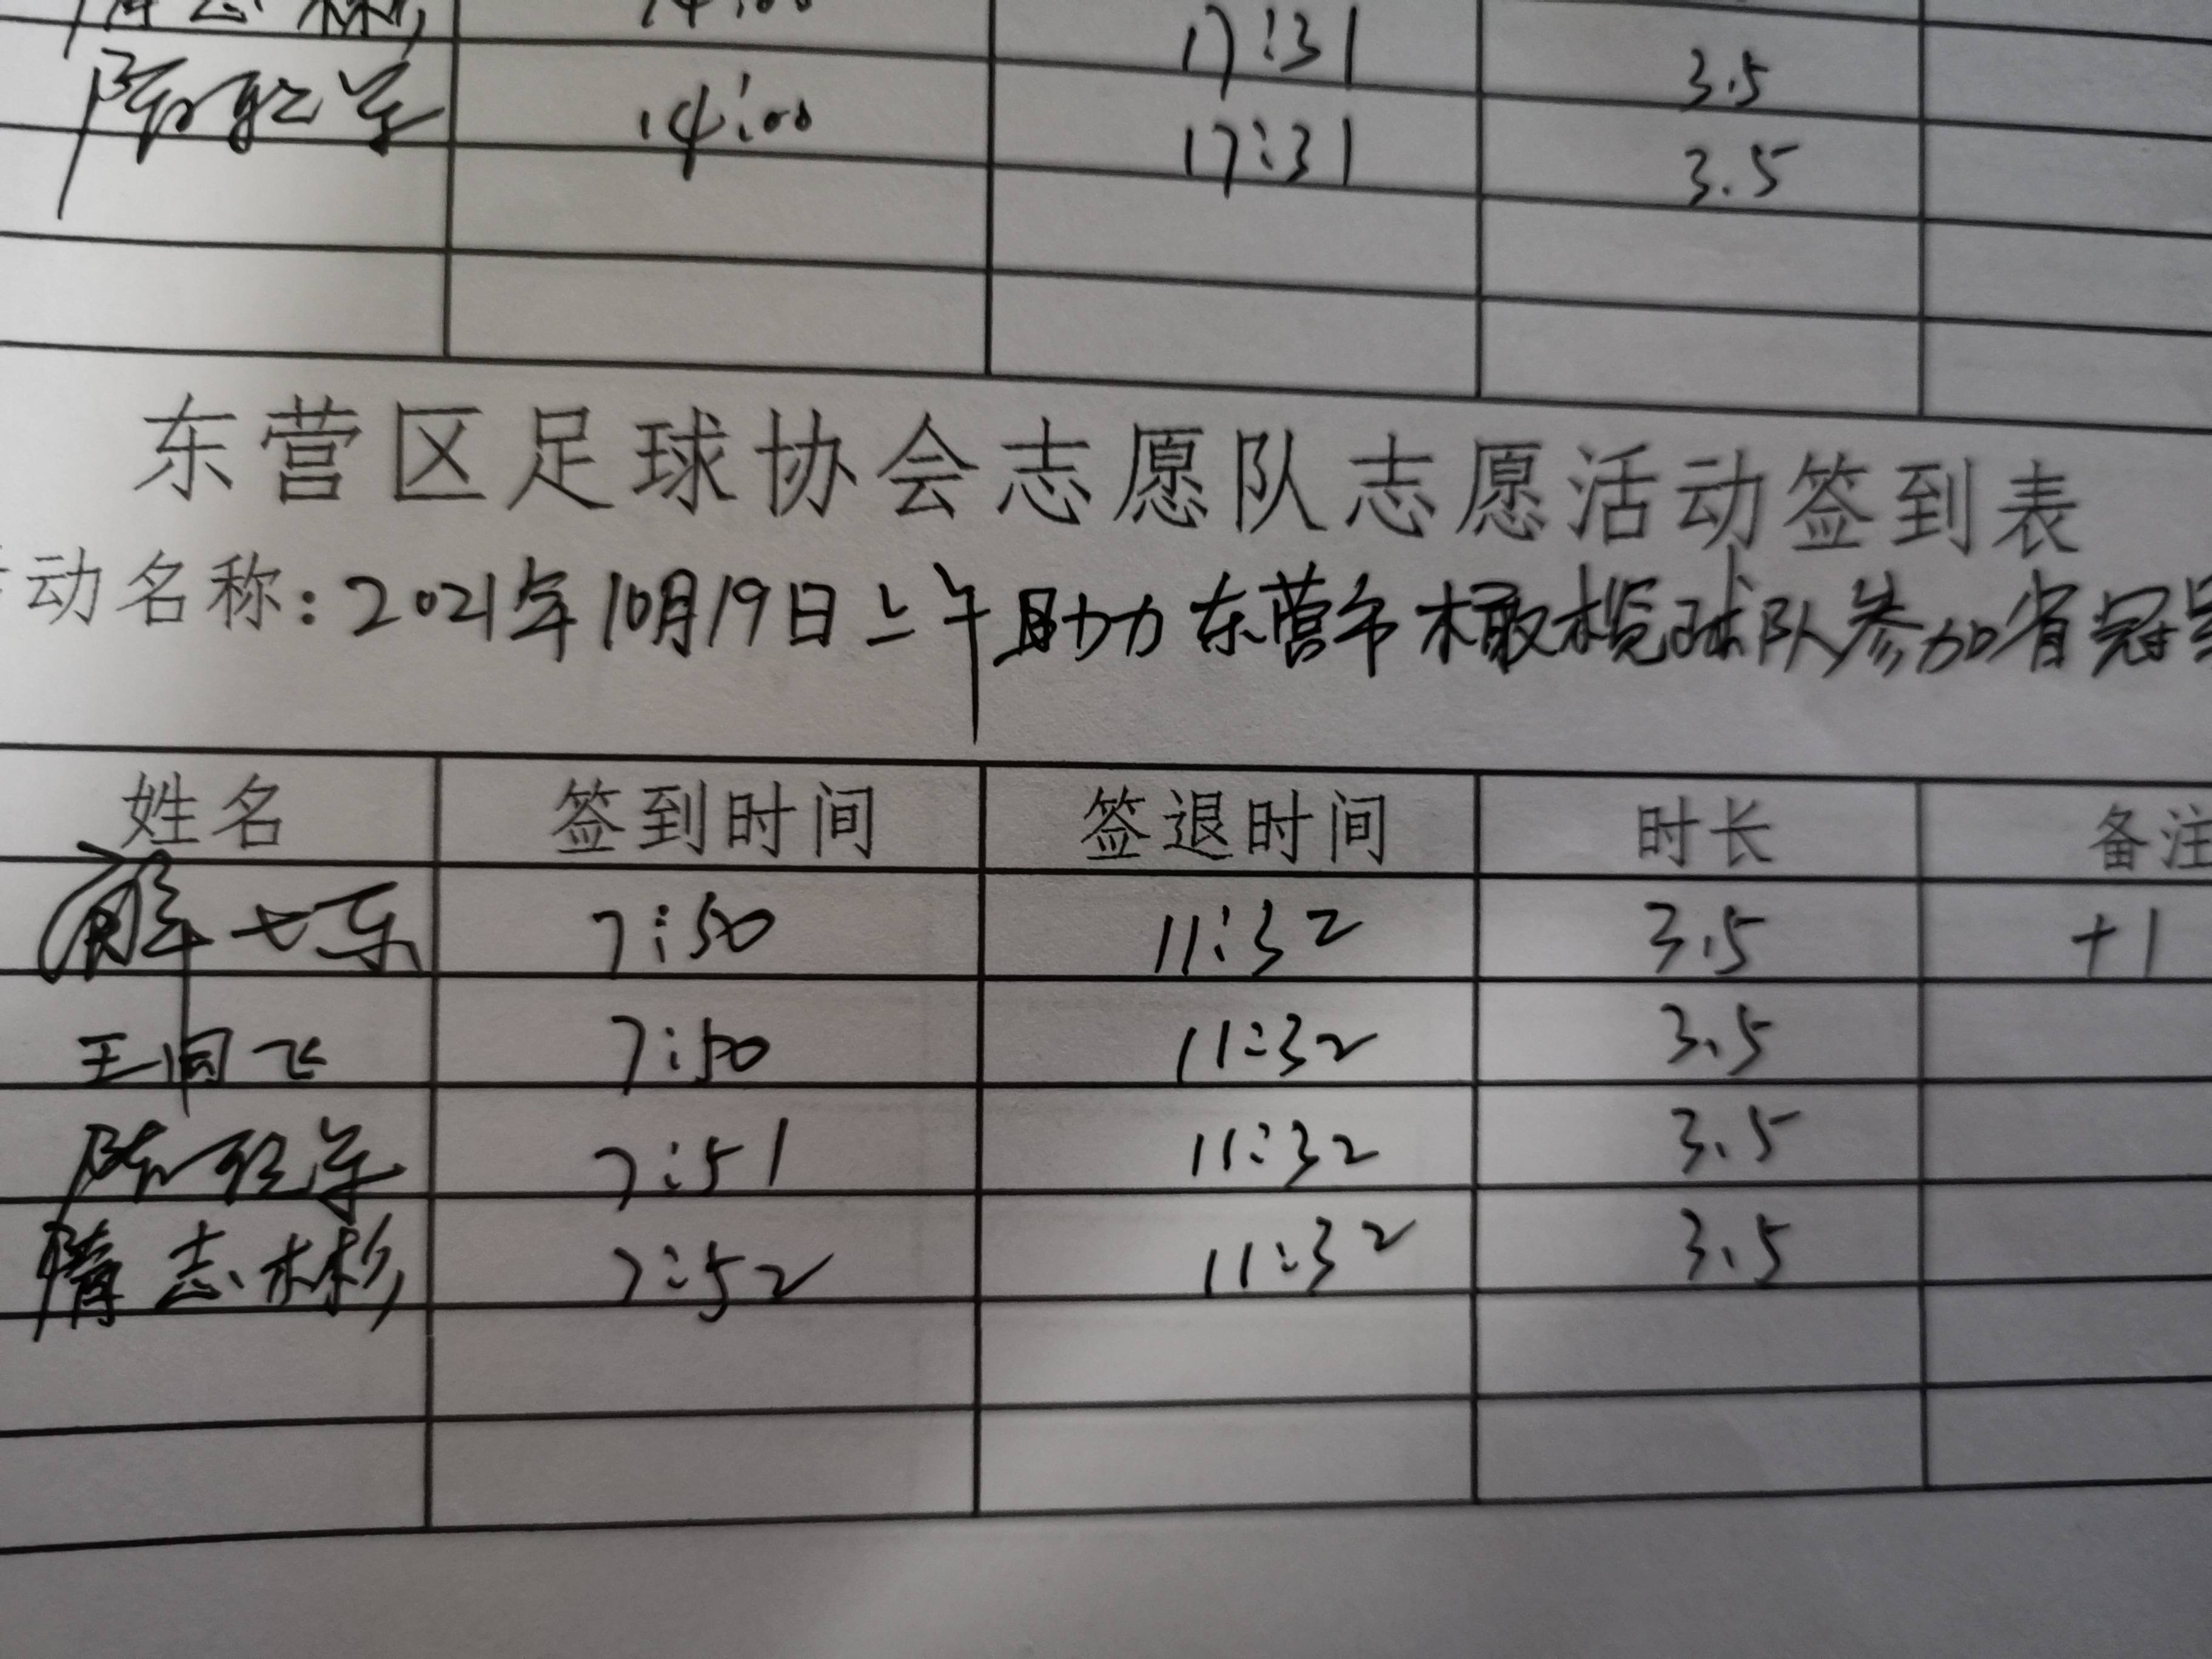 志彬 14:00 17:31 3.5
14:00 17:31 3.5
东营区足球协会志愿队志愿活动签到表
动名称：2021年10月19日上午助力东营市橄榄球队参加省冠
姓名 签到时间 签退时间 时长 备注
解 东 7:50 11:32 3.5 +1
王 飞 7:50 11:32 3.5
陈 军 7:51 11:32 3.5
隋志彬 7:52 11:32 3.5